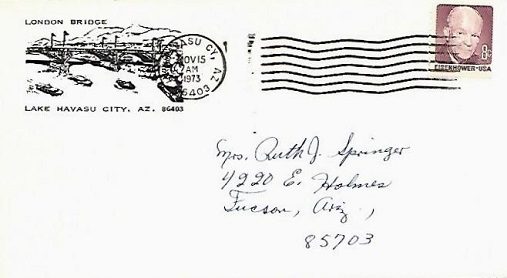 LONDON BRIDGE
LAKE HAVASU CITY, AZ. 86403
HAVASU CY, AZ
NOV 15
AM
1973
86403
8¢
EISENHOWER·USA
Mrs. Ruth J. Springer
4220 E. Holmes
Tucson, Ariz.,
85703